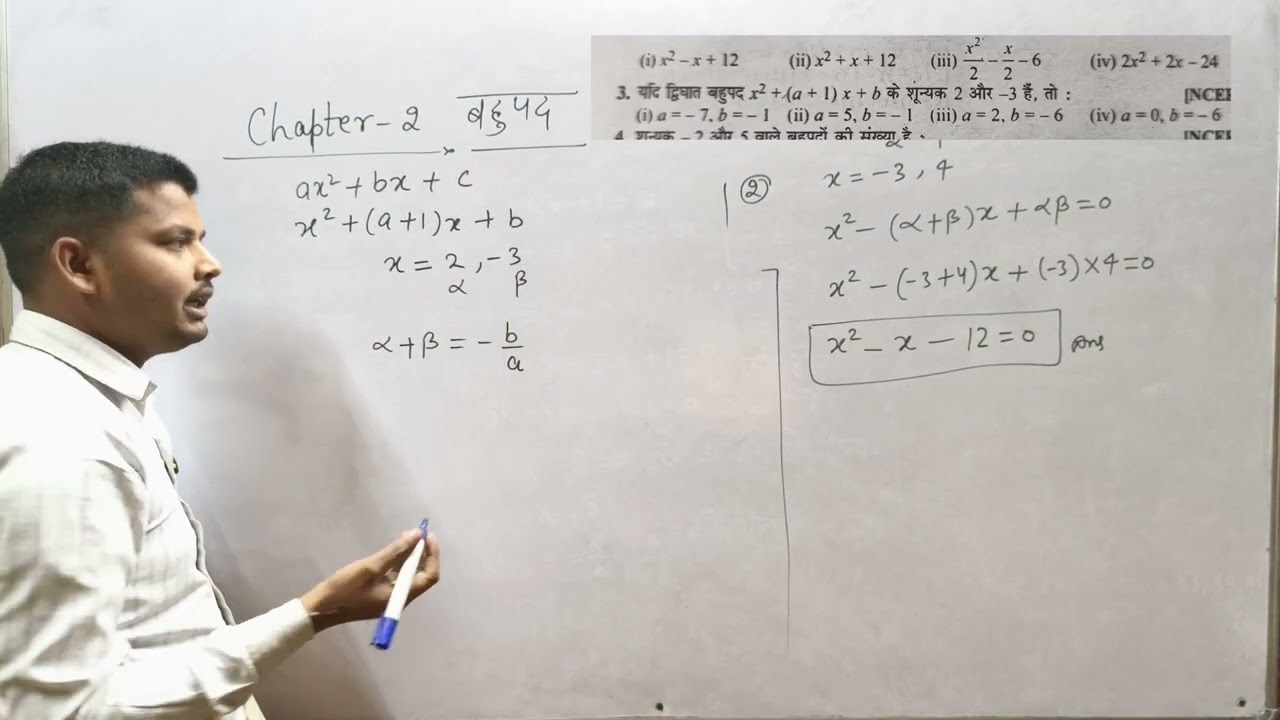 (i) x² – x + 12 (ii) x² + x + 12 (iii) x²/2 – x/2 – 6 (iv) 2x² + 2x – 24
3. यदि द्विघात बहुपद x² + (a + 1) x + b के शून्यक 2 और –3 हैं, तो : [NCER
(i) a = – 7, b = – 1 (ii) a = 5, b = – 1 (iii) a = 2, b = – 6 (iv) a = 0, b = – 6
4. शून्यक – 2 और 5 वाले बहुपदों की संख्या है : [NCER
Chapter-2 बहुपद
ax² + bx + c
x² + (a+1)x + b
x = 2, -3
α β
α+β = - b/a
②
x = -3, 4
x² - (α+β)x + αβ = 0
x² - (-3+4)x + (-3)×4 = 0
x² - x - 12 = 0 Ans